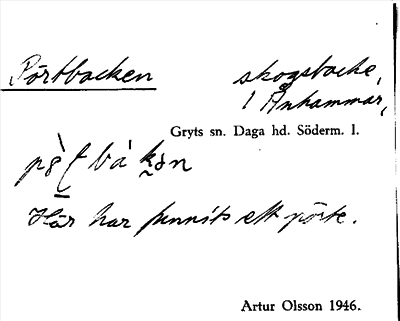 Pörtbacken skogsbacke,
1 Ånhammar,
Gryts sn. Daga hd. Söderm. l.
Här har funnits ett pörte.
Artur Olsson 1946.